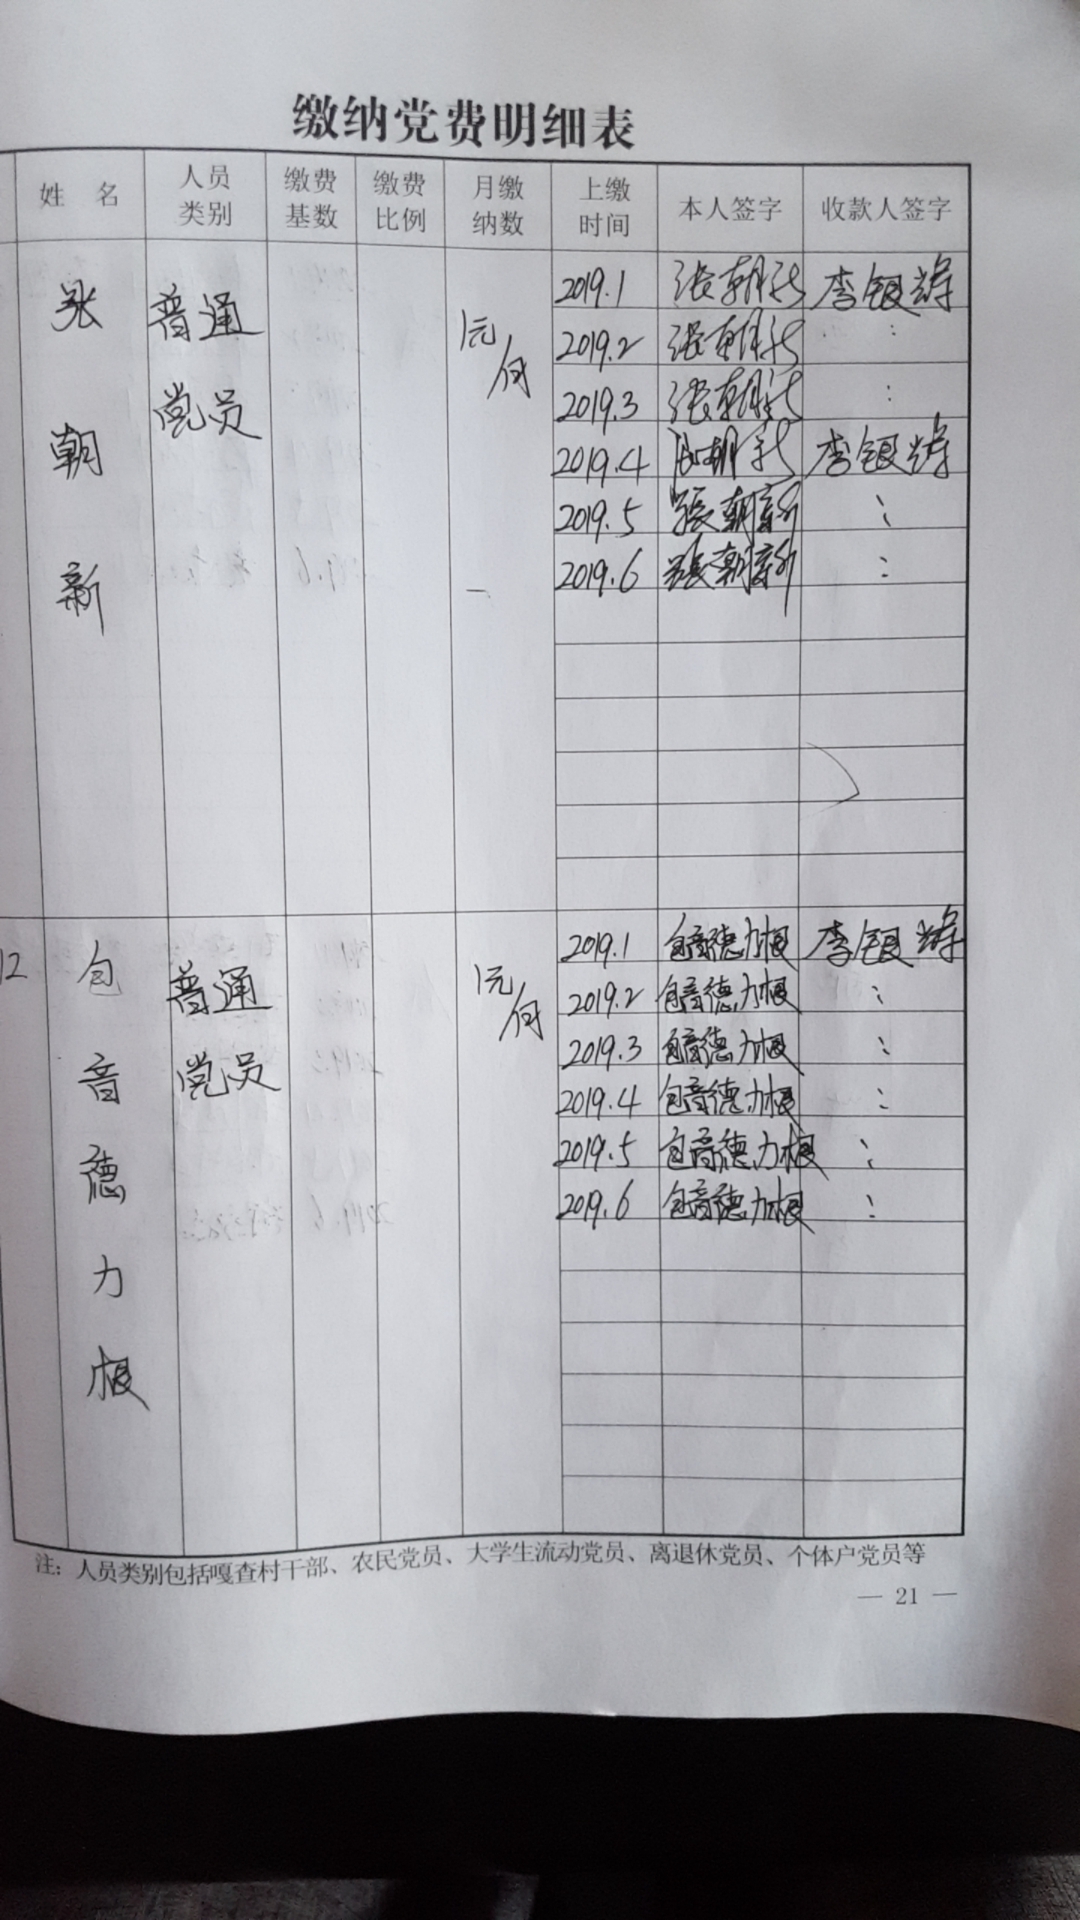 缴纳党费明细表
姓 名 人员类别 缴费基数 缴费比例 月缴纳数 上缴时间 本人签字 收款人签字
张朝新 普通党员 1元/月 2019.1 张朝新 李银辉
2019.2 张朝新 :
2019.3 张朝新 :
2019.4 张朝新 李银辉
2019.5 张朝新 :
2019.6 张朝新 :
12 包音德力根 普通党员 1元/月 2019.1 包音德力根 李银辉
2019.2 包音德力根 :
2019.3 包音德力根 :
2019.4 包音德力根 :
2019.5 包音德力根 :
2019.6 包音德力根 :
注：人员类别包括嘎查村干部、农民党员、大学生流动党员、离退休党员、个体户党员等
— 21 —